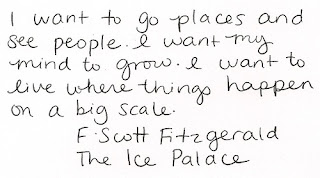 I want to go places and
see people. I want my
mind to grow. I want to
live where things happen
on a big scale.
F. Scott Fitzgerald
The Ice Palace